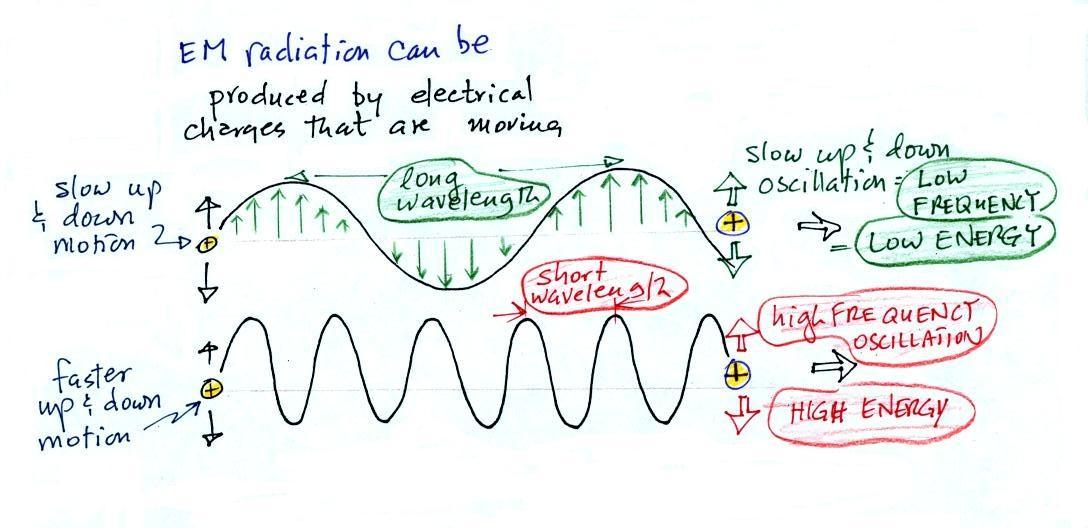 EM radiation can be
produced by electrical
charges that are moving
slow up
& down
motion
long
wavelength
slow up & down
oscillation =
LOW
FREQUENCY
= LOW ENERGY
short
wavelength
high FREQUENCY
OSCILLATION
HIGH ENERGY
faster
up & down
motion